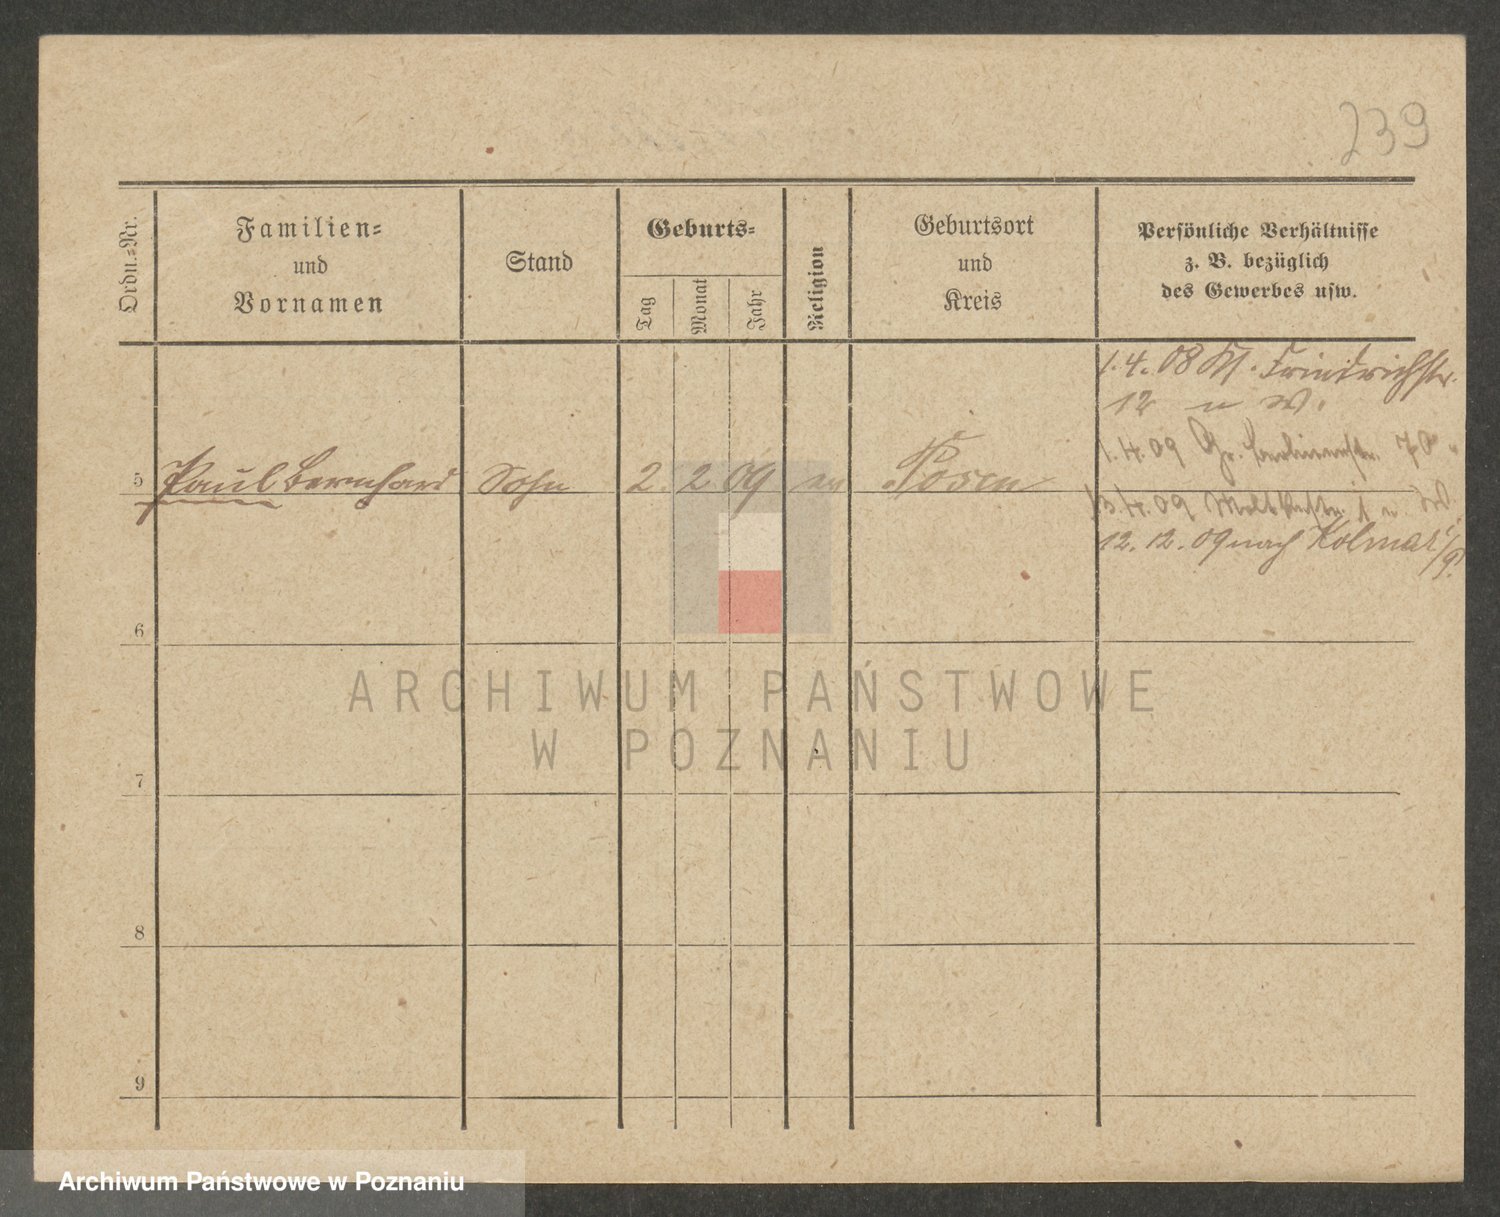 239
Ordn.-Nr.
Familien-
und
Vornamen
Stand
Geburts-
Tag
Monat
Jahr
Religion
Geburtsort
und
Kreis
Persönliche Verhältnisse
z. B. bezüglich
des Gewerbes usw.
1.4.08 Kl. Friedrichstr.
12 n W.
1.4.09 Gr. 70
5 Paul Bernhard Sohn 2. 2 09 ev Posen
13.4.09 Moltkestr. 1 n W.
12.12.09 nach Kolmar
6
ARCHIWUM PAŃSTWOWE
W POZNANIU
7
8
9
Archiwum Państwowe w Poznaniu